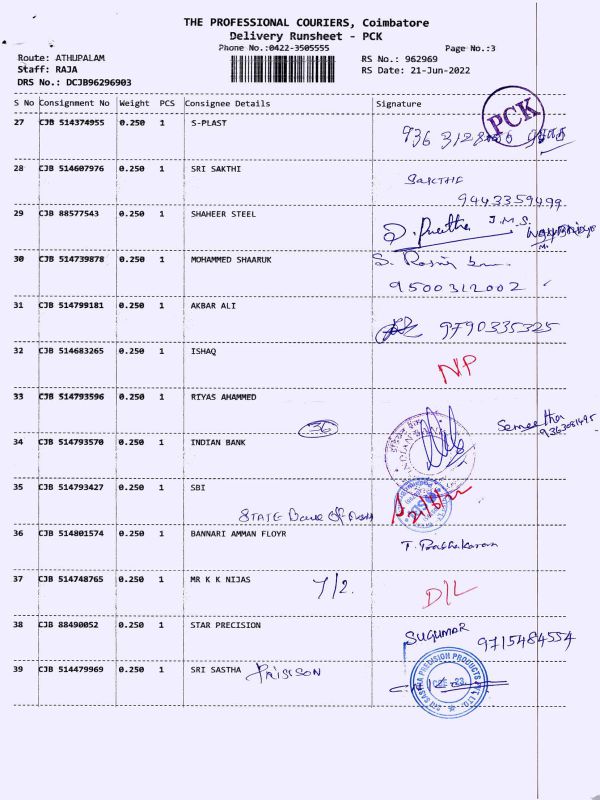 THE PROFESSIONAL COURIERS, Coimbatore
Delivery Runsheet - PCK
Phone No.:0422-3505555
Page No.:3
Route: ATHUPALAM
RS No.: 962969
Staff: RAJA
RS Date: 21-Jun-2022
DRS No.: DCJB96296903
S No Consignment No Weight PCS Consignee Details Signature
27 CJB 514374955 0.250 1 S-PLAST
PCK
28 CJB 514607976 0.250 1 SRI SAKTHI
SAKTHI
9443359499
29 CJB 88577543 0.250 1 SHAHEER STEEL
J.M.S.
30 CJB 514739878 0.250 1 MOHAMMED SHAARUK
9500312002
31 CJB 514799181 0.250 1 AKBAR ALI
9790335325
32 CJB 514683265 0.250 1 ISHAQ
NP
33 CJB 514793596 0.250 1 RIYAS AHAMMED
36
34 CJB 514793570 0.250 1 INDIAN BANK
INDIAN BANK
35 CJB 514793427 0.250 1 SBI
STATE Bank Of
36 CJB 514801574 0.250 1 BANNARI AMMAN FLOYR
T. Prabhakaran
37 CJB 514748765 0.250 1 MR K K NIJAS
7/2.
D/L
38 CJB 88490052 0.250 1 STAR PRECISION
SUGUMAR
9715484554
39 CJB 514479969 0.250 1 SRI SASTHA
SRI SASTHA PRECISION PRODUCTS PVT. LTD.